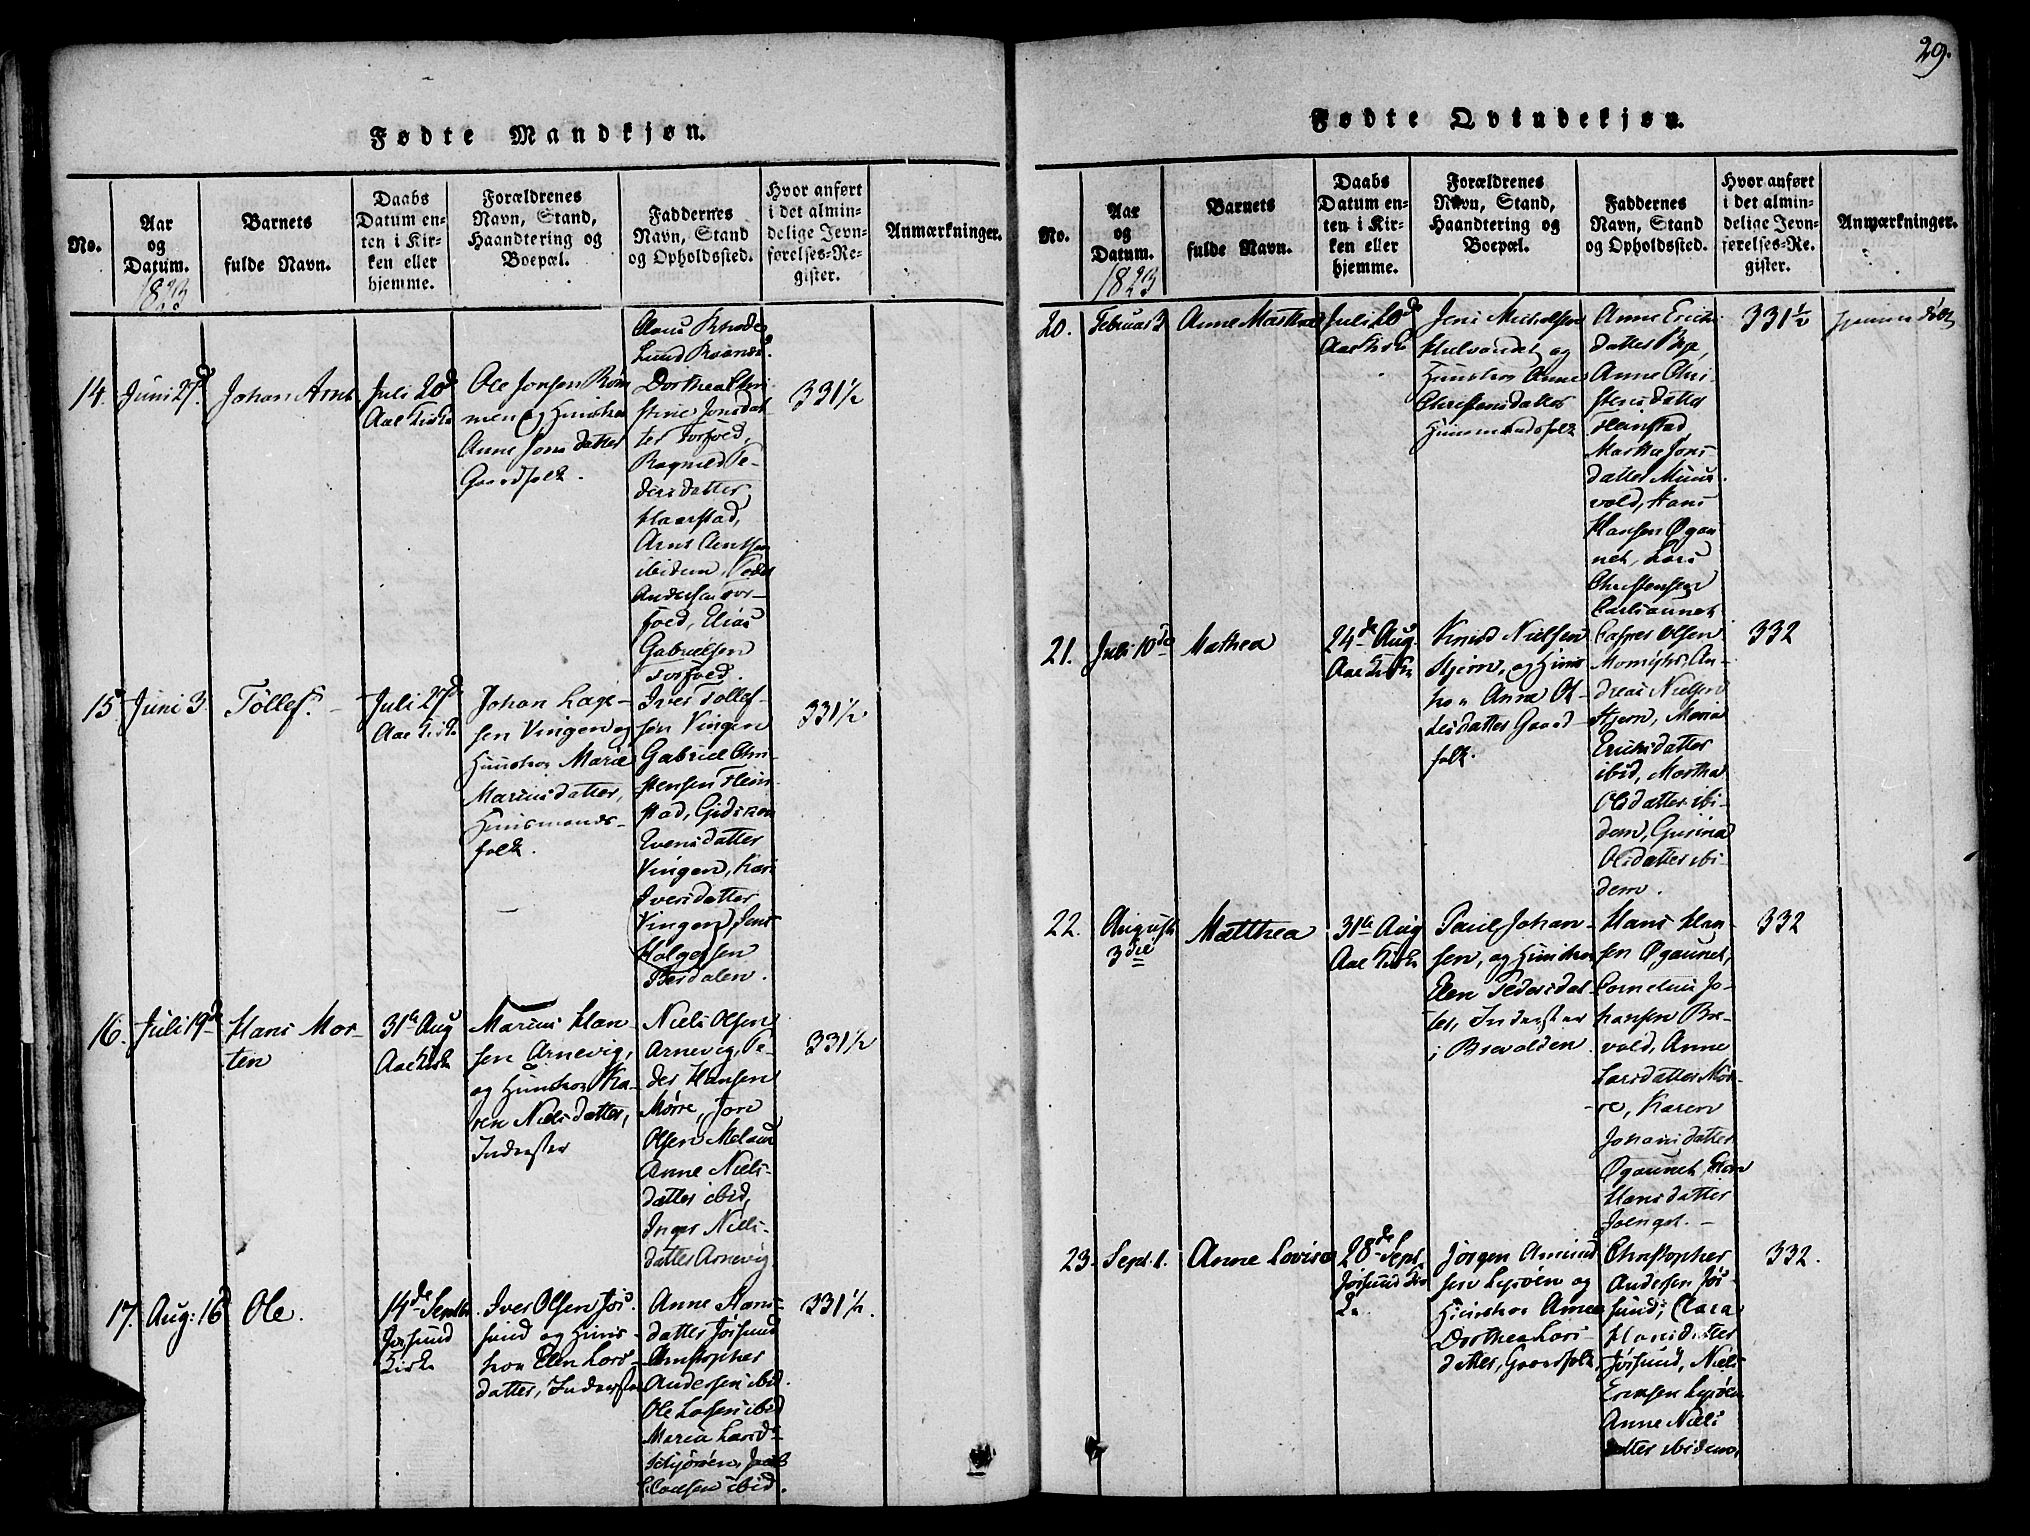 29.
Fødte Mandkjøn.
No.
Aar
og
Datum.
1823
Barnets
fulde Navn.
Daabs
Datum en-
ten i Kir-
ken eller
hjemme.
Forældrenes
Navn, Stand,
Haandtering og
Boepæl.
Faddernes
Navn, Stand
og Opholdssted.
Hvor anført
i det almin-
delige Jevn-
førelses-Re-
gister.
Anmærkninger.
14.
Juni 27d
Johan Arnt
Juli 20d
Aae Kirke
Ole Jonsen
men og Hustroe
Anne Jonsdatter
Gaardfolk.
Claus
Lund
Dorthea Chri-
stine Jonsdat-
ter Torfved,
Ragnild Pe-
dersdatter
Haarstad,
Arnt Arntsen
ibidem, Peder
Andersen Tor-
fved, Elias
Gabrielsen
Torfved.
331½
15
Juni 3
Tøllef.
Juli 27d
Aae Kirke
Johan Lage-
sen Vingen og
Hustroe Marie
Mariusdatter,
Huusmands-
folk.
Iver Tøllef-
sen Vingen
Gabriel Chri-
stensen Flein-
stad, Gidsken
Evensdatter
Vingen, Kari
Iversdatter
Vingen, Jens
Holgersen
Berdalen.
331½
16.
Juli 19d
Hans Mor-
ten
31te Aug
Aae Kirke
Marius Han-
sen Arnevig,
og Hustroe Ka-
ren Nielsdatter,
Inderster
Niels Olsen
Arnevig, Pe-
der Hansen
Mørre, Jon
Olsen Melum
Anne Niels-
datter ibid,
Inger Niels-
datter Arnevig
331½
17.
Aug: 16d
Ole.
14de Septbr
Jøssund
Kirke
Iver Olsen Jøs-
sund og Huus-
troe Elen Lars-
datter, Inderster
Anne Hans-
datter Jøssund
Christopher
Andersen ibid.
Ole Larsen ibid
Maria Larsd.
Schjørøen, Jacob
Clausen ibid.
331½.
Fødte Qvindekjøn.
No.
Aar
og
Datum.
1823
Barnets
fulde Navn.
Daabs
Datum en-
ten i Kir-
ken eller
hjemme.
Forældrenes
Navn, Stand,
Haandtering og
Boepæl.
Faddernes
Navn, Stand
og Opholdssted.
Hvor anført
i det almin-
delige Jevn-
førelses-Re-
gister.
Anmærkninger.
20.
Februar 3
Anne Marthe
Juli 20d
Aae Kirke
Jens Michelsen
Hulvandet og
Hustroe Anne
Christensdatter
Huusmandsfolk
Anne Erichs
datter Bye,
Anne Chri-
stensdatter
Fleinstad,
Marthe Jons
datter Muus-
vold, Hans
Hansen Øgau-
net, Lars
Christensen
Carlsaunet
331½
hjemme døbt
21.
Juli 10de
Mathea
24de Aug.
Aae Kirke
Knud Nielsen
Stjern, og Hus-
troe Anne Ol-
lesdatter Gaard-
folk.
Casper Olsen
Momyhr, An-
dreas Nielsen
Stjern, Maria
Erichsdatter
ibid, Martha
Olsdatter ibi-
dem, Gurina
Olsdatter ibi-
dem.
332
22.
August
3die
Matthea
31te Aug
Aae Kirke
Paul Johan-
sen, og Hustroe
Elen Pedersdat-
ter, Inderster
i Brevolden
Hans Han-
sen Øgaunet,
Cornelius Jo-
hansen Bre-
vold, Anne
Larsdatter Mør-
re, Karen
Johansdatter
Øgaunet, Elen
Hansdatter
Joenget.
332
23.
Sept. 1.
Anne Lovise
28de Sept.
Jøssund Kir-
ke
Jørgen Amund
sen Lysøen og
Hustroe Anne
Dorthea Lars-
datter, Gaardfolk
Christopher
Andersen Jøs-
sund, Clara
Hansdatter
Jøssund, Niels
Ericksen Lysøen
Anne Niels
datter ibidem.
332.